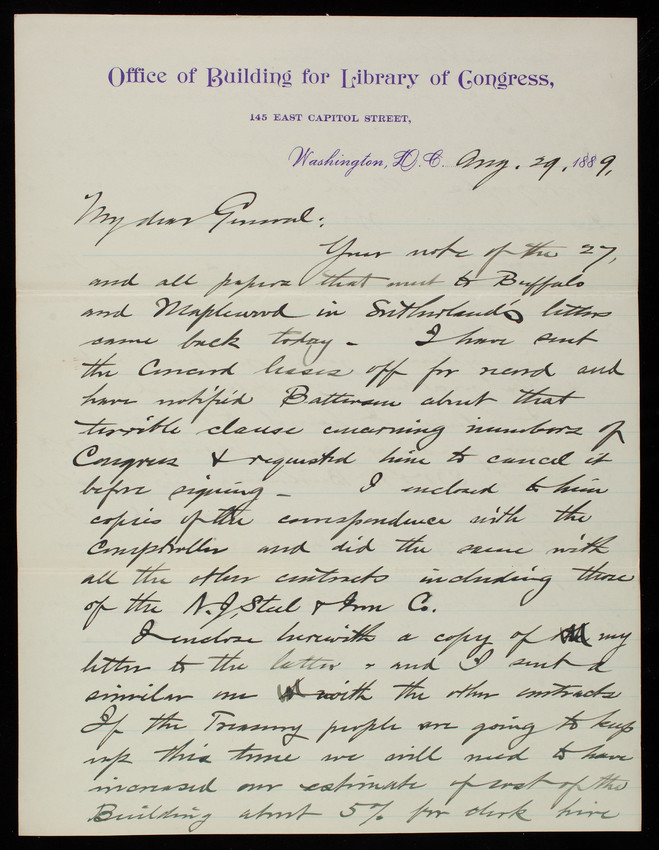 Office of Building for Library of Congress,
145 EAST CAPITOL STREET,
Washington, D.C. Aug. 29, 1889,
My dear General:
Your note of the 27,
and all papers that went to Buffalo
and Maplewood in Sutherland's letters
came back today - I have sent
the Concord leases off for record and
have notified Batterson about that
terrible clause concerning members of
Congress & requested him to cancel it
before signing - I enclosed to him
copies of the correspondence with the
Comptroller and did the same with
all the other contracts including those
of the N.J. Steel & Iron Co.
I enclose herewith a copy of my
letter to the latter - and I sent a
similar one with the other contracts
If the Treasury people are going to keep
up this tune we will need to have
increased our estimate of cost of the
Building about 5% for clerk hire